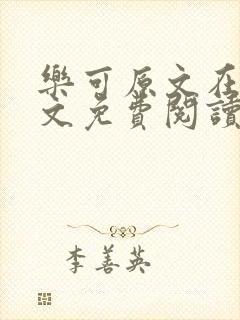 樂可原文在
文免費閱讀
李善英